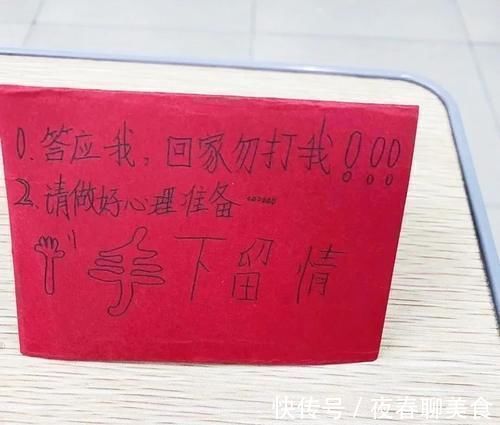 1.答应我,回家勿打我!!!
2.请做好心理准备……
手下留情
快传号/夜春聊美食